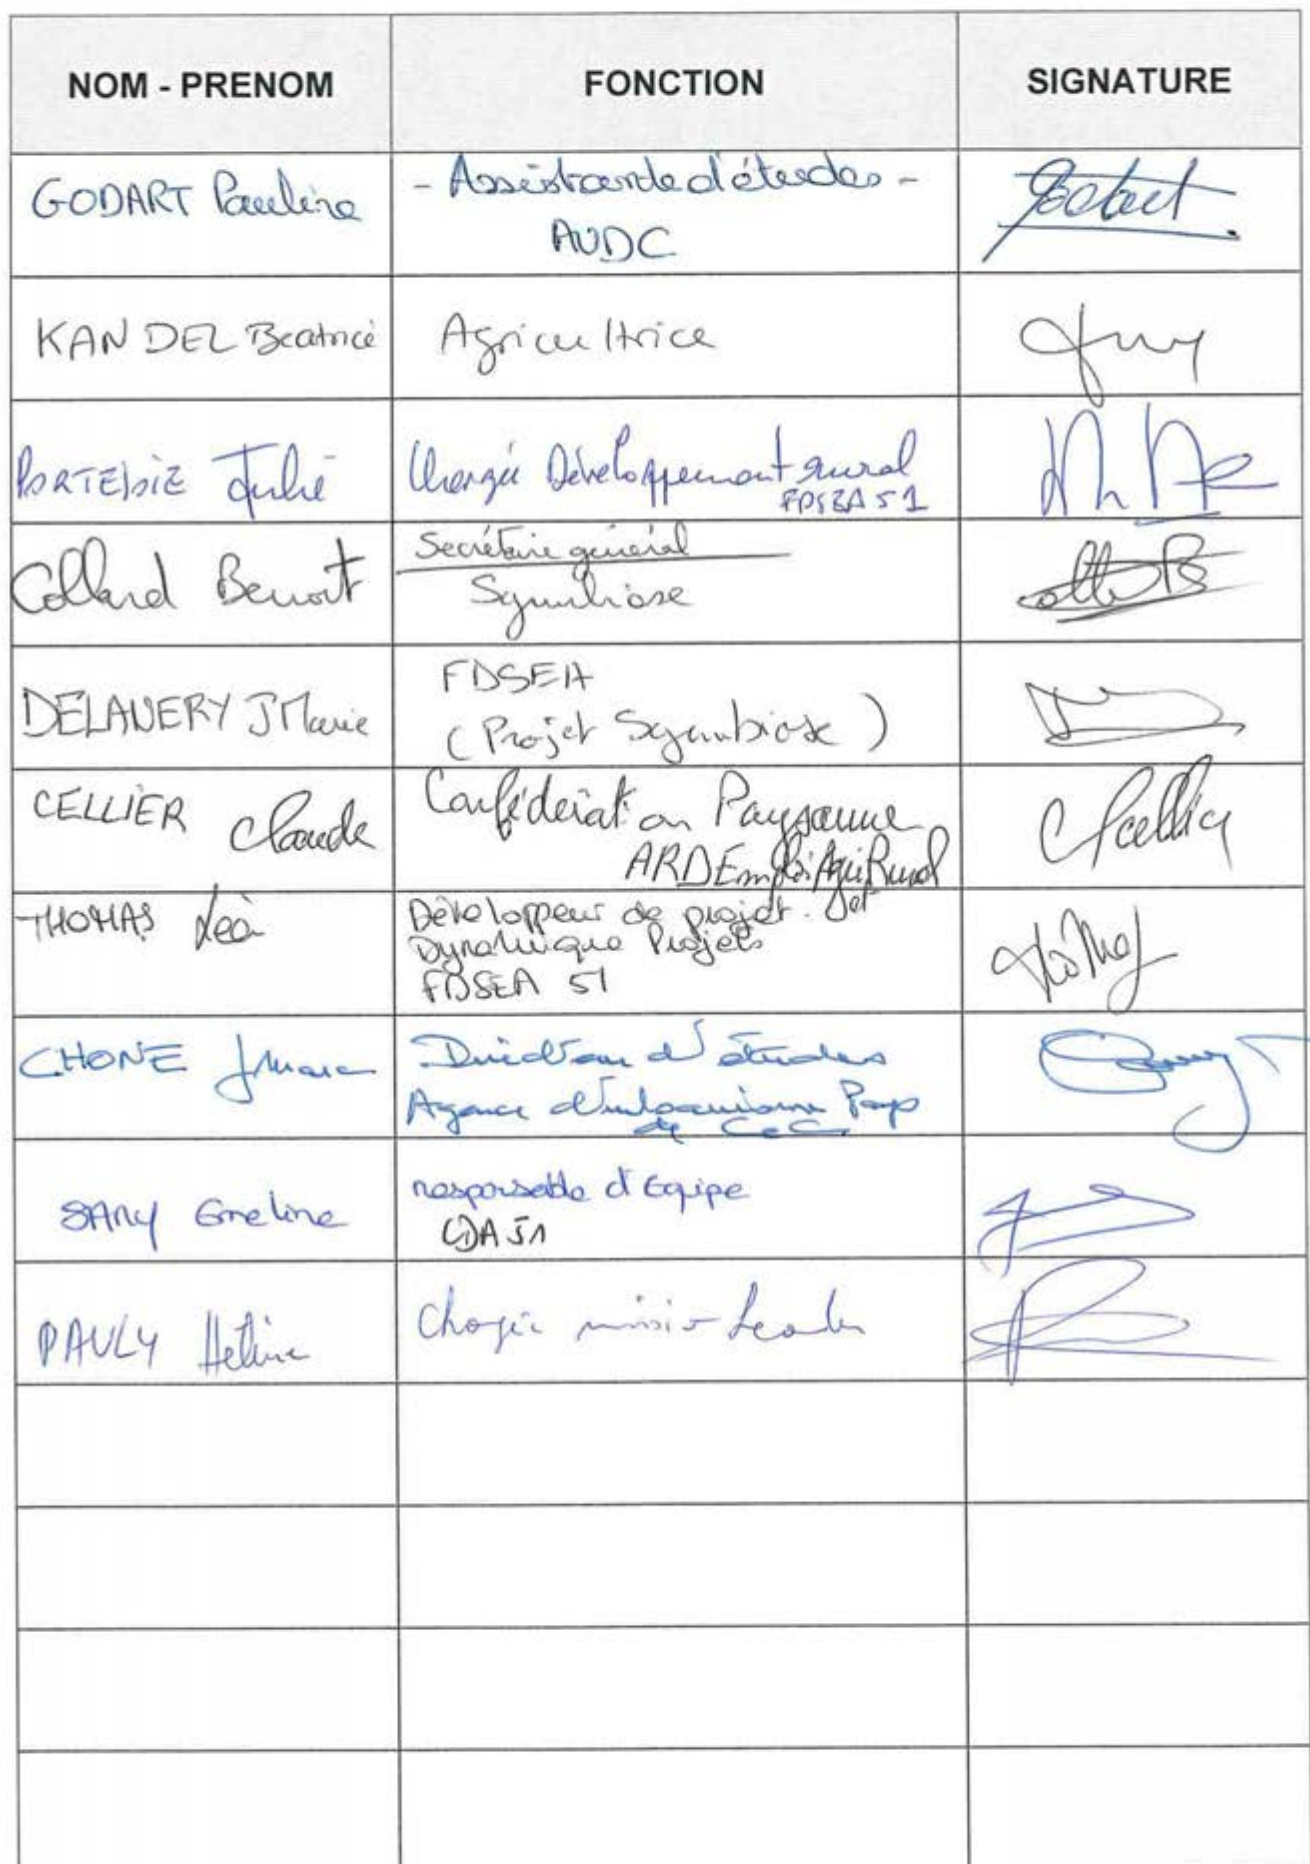 NOM - PRENOM FONCTION SIGNATURE
GODART Pauline - Assistante d'études -
AUDC
KANDEL Beatrice Agricultrice
Julie Chargée Développement rural
FDSEA 51
Collard Benoit Secrétaire général
Symbiose
DELAVERY JMarie FDSEA
(Projet Symbiose)
CELLIER Claude Confédération Paysanne
ARDEmploiAgriRural
THOMAS Léa Développeur de projet
Dynamique Projets
FDSEA 51
CHONE JMarc Directeur d'études
Agence d'urbanisme Pays
de C
SARY Emeline responsable d'équipe
CDA 51
PAULY Hélène Chargée mission Leader